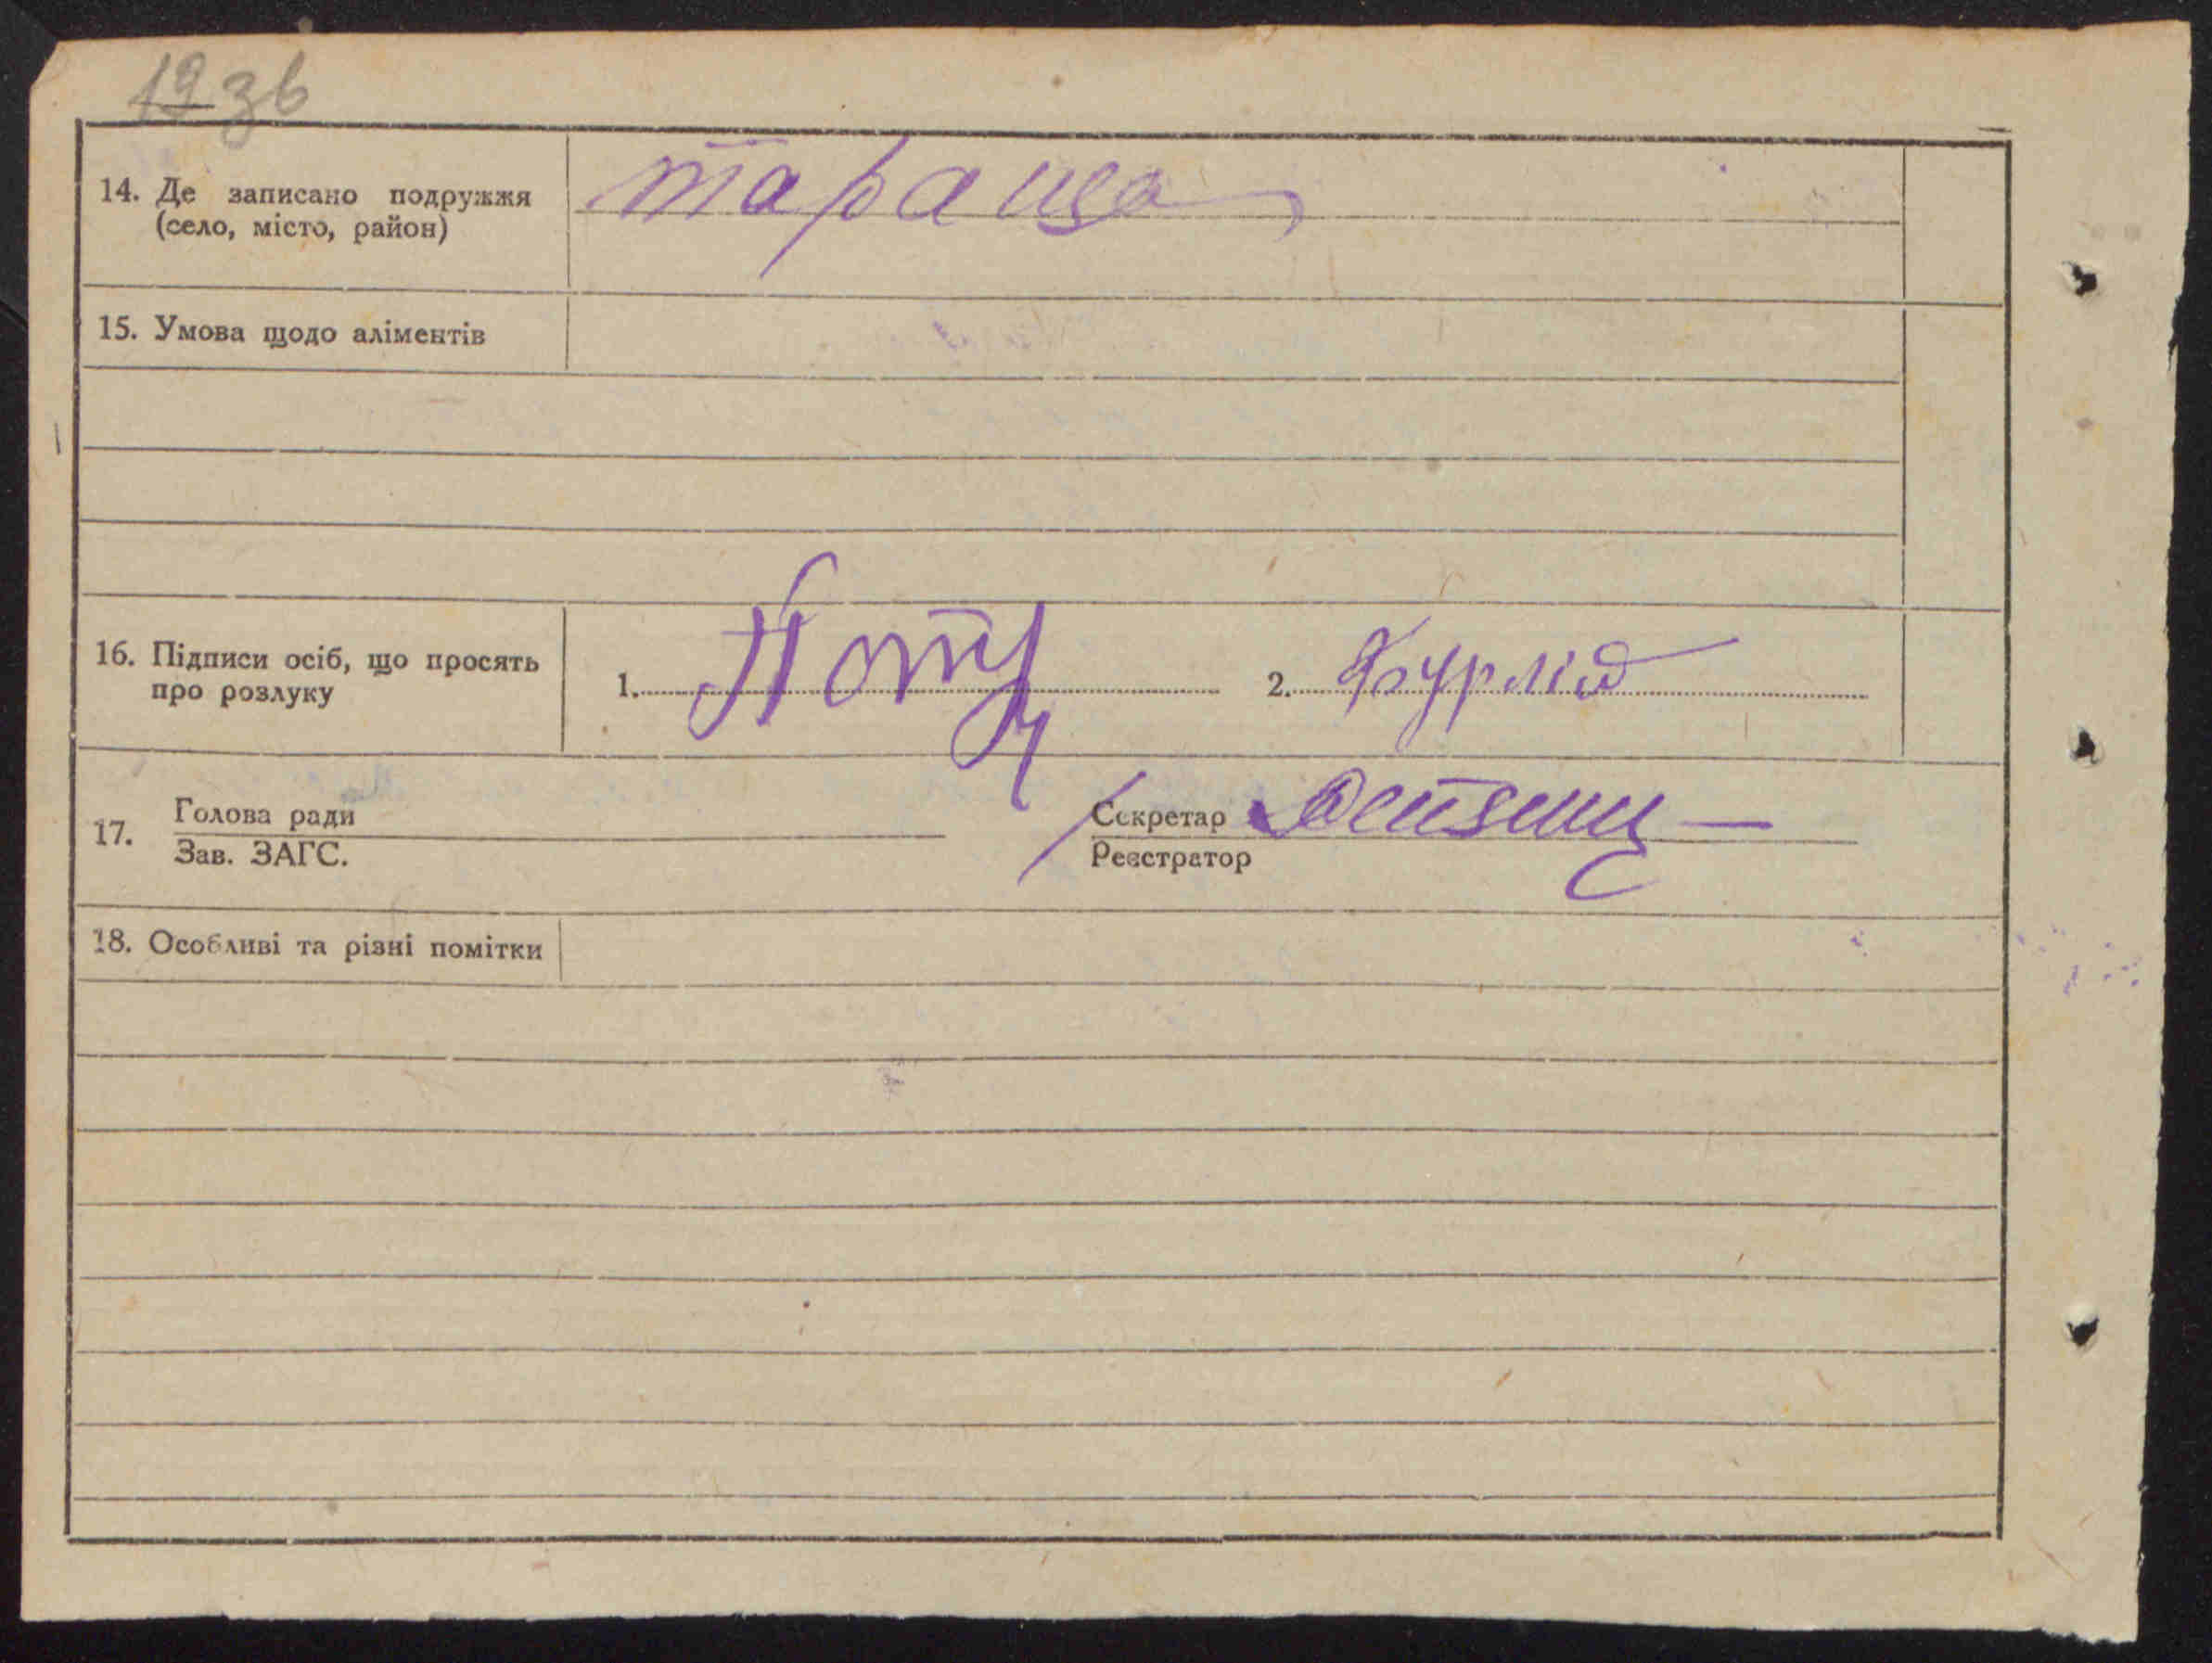 19 зв
14. Де записано подружжя тараща
(село, місто, район)
15. Умова щодо аліментів
16. Підписи осіб, що просять
про розлуку
1. 2.
17. Голова ради Секретар
Зав. ЗАГС. Реєстратор
18. Особливі та різні помітки